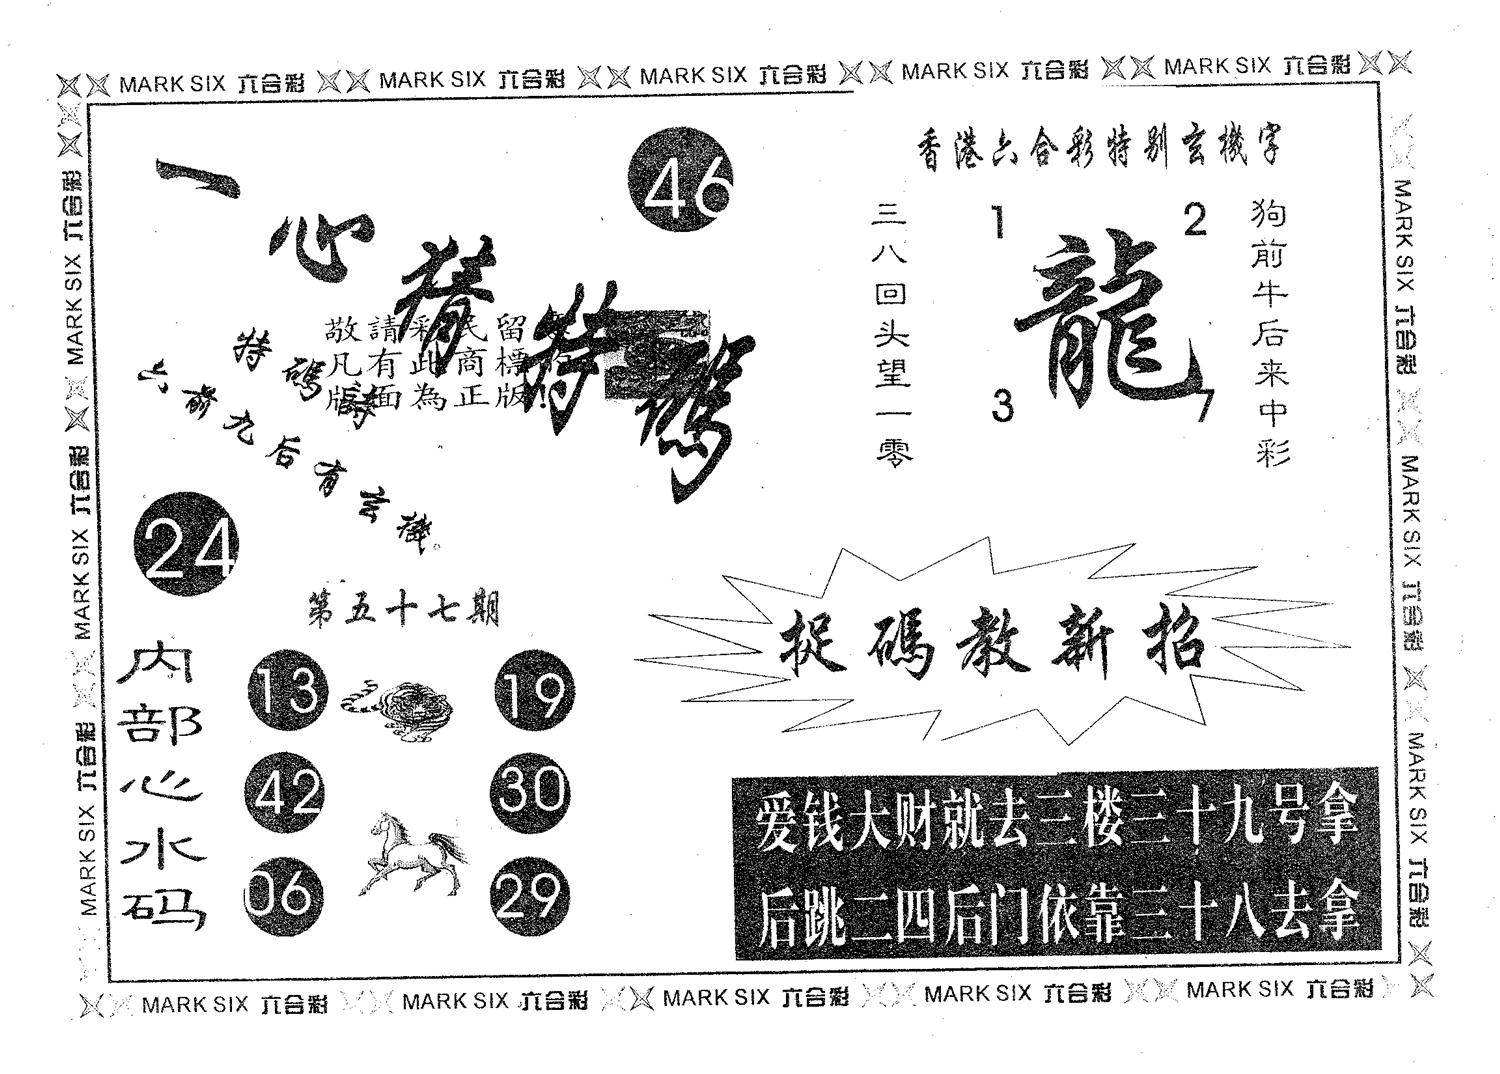 MARK SIX 六合彩 MARK SIX 六合彩 MARK SIX 六合彩 MARK SIX 六合彩 MARK SIX 六合彩
MARK SIX 六合彩 MARK SIX 六合彩 MARK SIX 六合彩
一心猜特碼
46
敬請彩民留
凡有此商標
版面為正版!
特碼詩
六前九后有玄機。
24
第五十七期
内部心水码
13 19
42 30
06 29
香港六合彩特别玄機字
三八回头望一零
1 2
龍
3 7
狗前牛后来中彩
捉碼教新招
爱钱大财就去三楼三十九号拿
后跳二四后门依靠三十八去拿
MARK SIX 六合彩 MARK SIX 六合彩 MARK SIX 六合彩
MARK SIX 六合彩 MARK SIX 六合彩 MARK SIX 六合彩 MARK SIX 六合彩 MARK SIX 六合彩